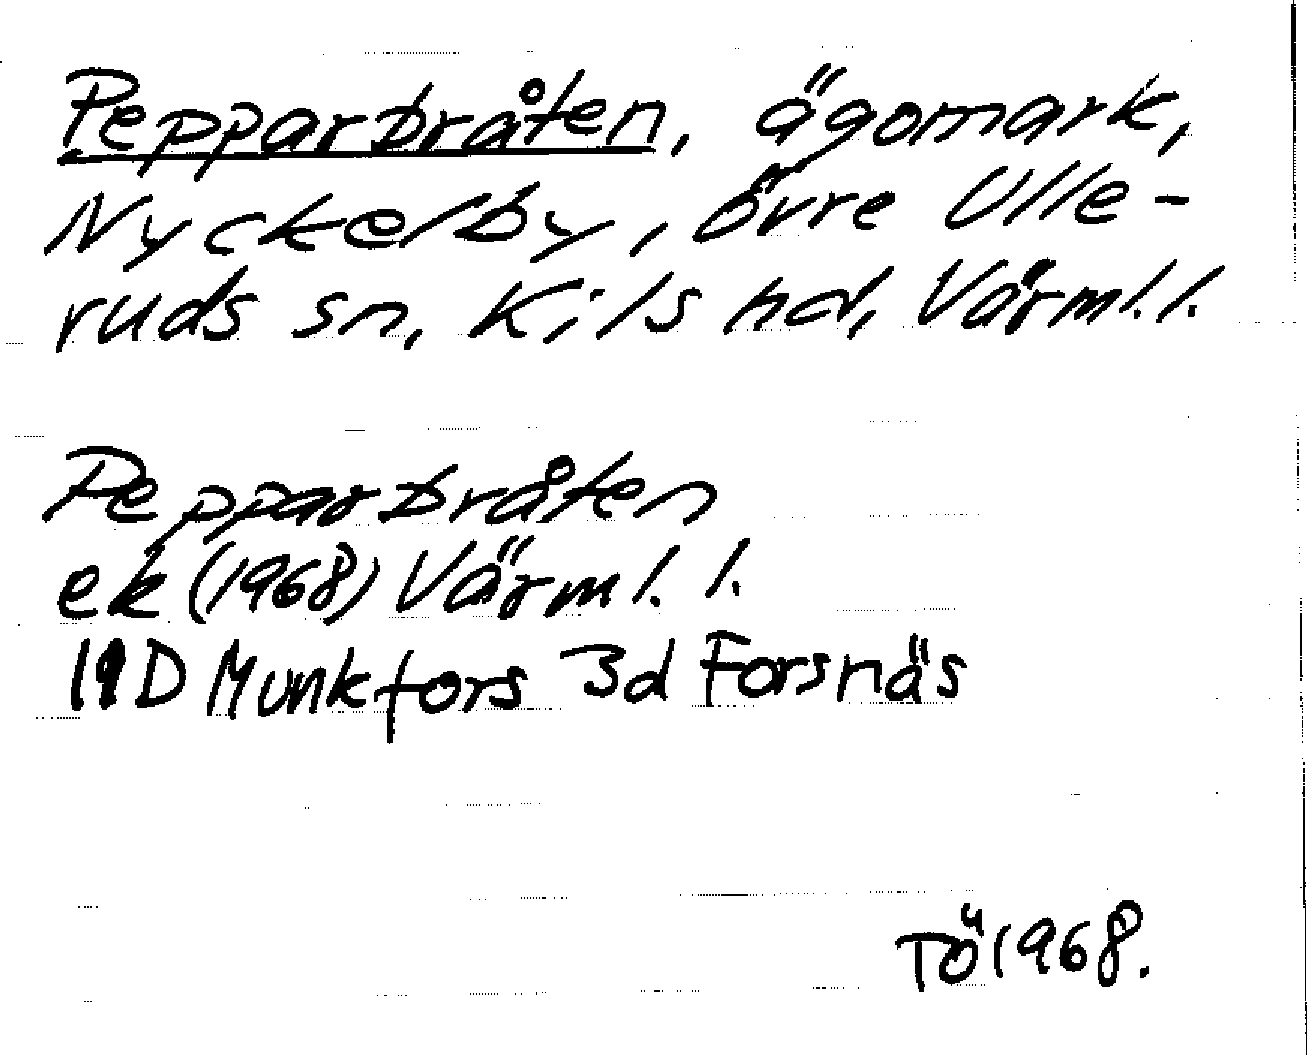 Pepparbråten, ägomark,
Nyckelby, övre Ulle-
ruds sn, Kils hd, Värml. l.
Pepparbråten
ek (1968) Värml. l.
11D Munkfors 3d Forsnäs
TÖ 1968.